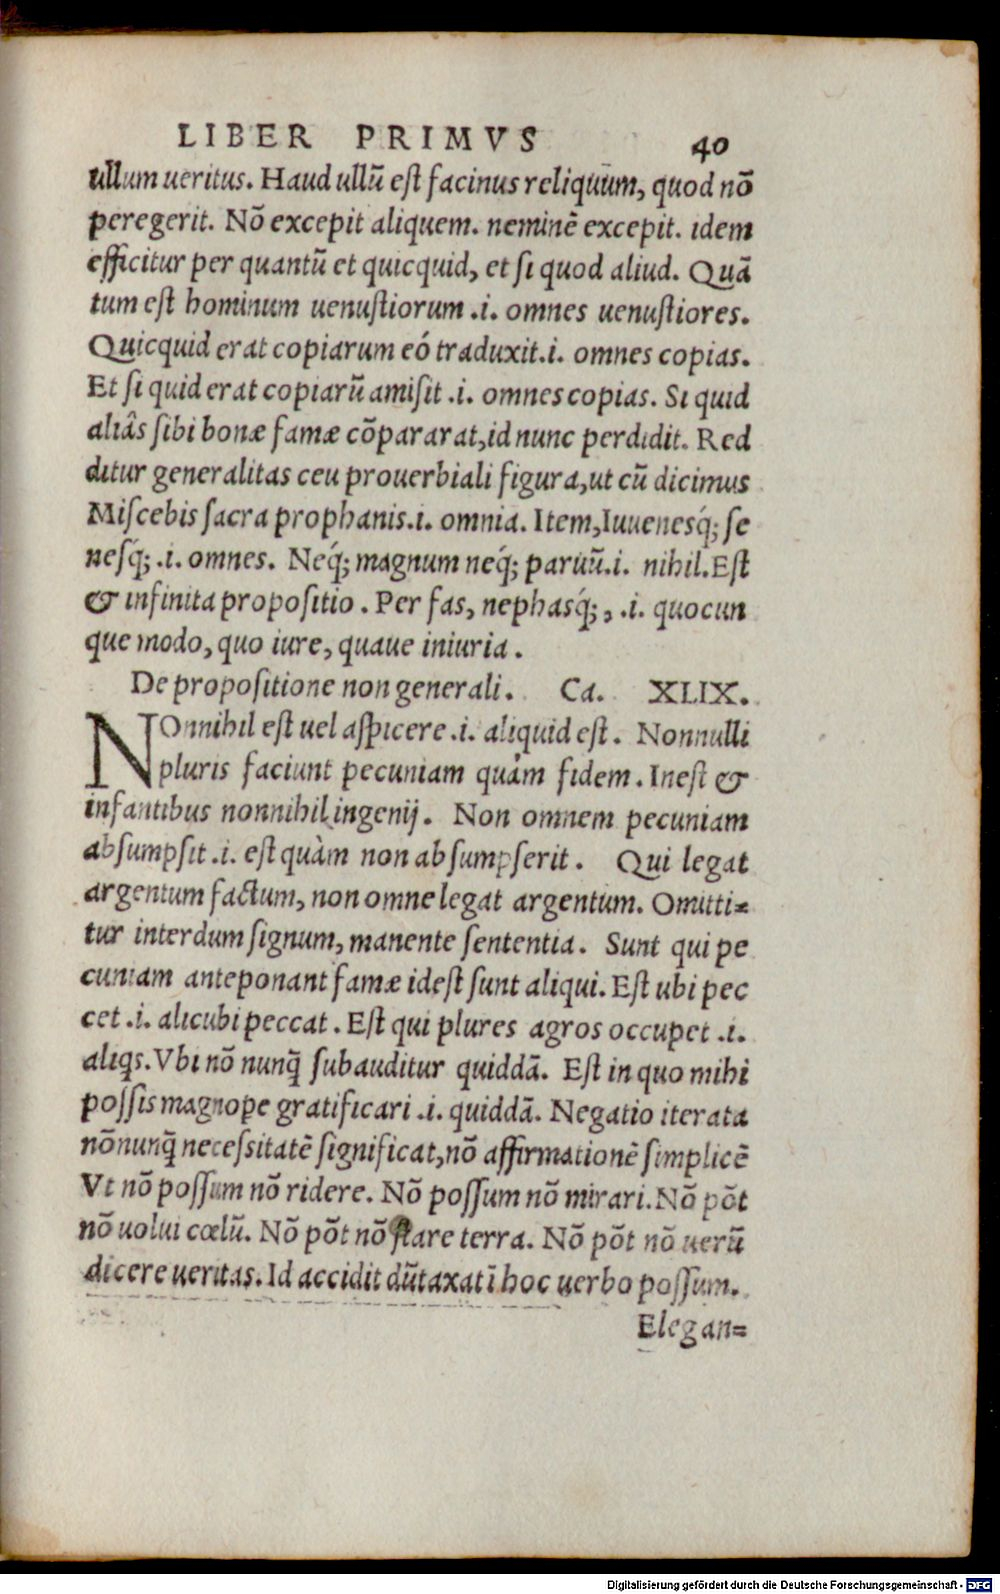 LIBER PRIMVS 40
ullum ueritus. Haud ullũ est facinus reliquum, quod nõ
peregerit. Nõ excepit aliquem. neminẽ excepit. idem
efficitur per quantũ et quicquid, et si quod aliud. Quã
tum est hominum uenustiorum .i. omnes uenustiores.
Quicquid erat copiarum eó traduxit.i. omnes copias.
Et si quid erat copiarũ amisit .i. omnes copias. Si quid
aliâs sibi bonæ famæ cõpararat, id nunc perdidit. Red
ditur generalitas ceu prouerbiali figura, ut cũ dicimus
Miscebis sacra prophanis.i. omnia. Item, Iuuenesq́; se
nesq́; .i. omnes. Neq́; magnum neq́; paruũ.i. nihil. Est
& infinita propositio. Per fas, nephasq́;, .i. quocun
que modo, quo iure, quaue iniuria.
De propositione non generali. Ca. XLIX.
NOnnihil est uel aspicere .i. aliquid est. Nonnulli
pluris faciunt pecuniam quàm fidem. Inest &
infantibus nonnihil ingenij. Non omnem pecuniam
absumpsit .i. est quàm non absumpserit. Qui legat
argentum factum, non omne legat argentum. Omitti=
tur interdum signum, manente sententia. Sunt qui pe
cuniam anteponant famæ idest sunt aliqui. Est ubi pec
cet .i. alicubi peccat. Est qui plures agros occupet .i.
aliqs. Vbi nõ nunq̃ subauditur quiddã. Est in quo mihi
possis magnope gratificari .i. quiddã. Negatio iterata
nõnunq̃ necessitatẽ significat, nõ affirmationẽ simplicẽ
Vt nõ possum nõ ridere. Nõ possum nõ mirari. Nõ põt
nõ uolui cœlũ. Nõ põt nõ stare terra. Nõ põt nõ uerũ
dicere ueritas. Id accidit dũtaxat ĩ hoc uerbo possum.
Elegan=
Digitalisierung gefördert durch die Deutsche Forschungsgemeinschaft - DFG